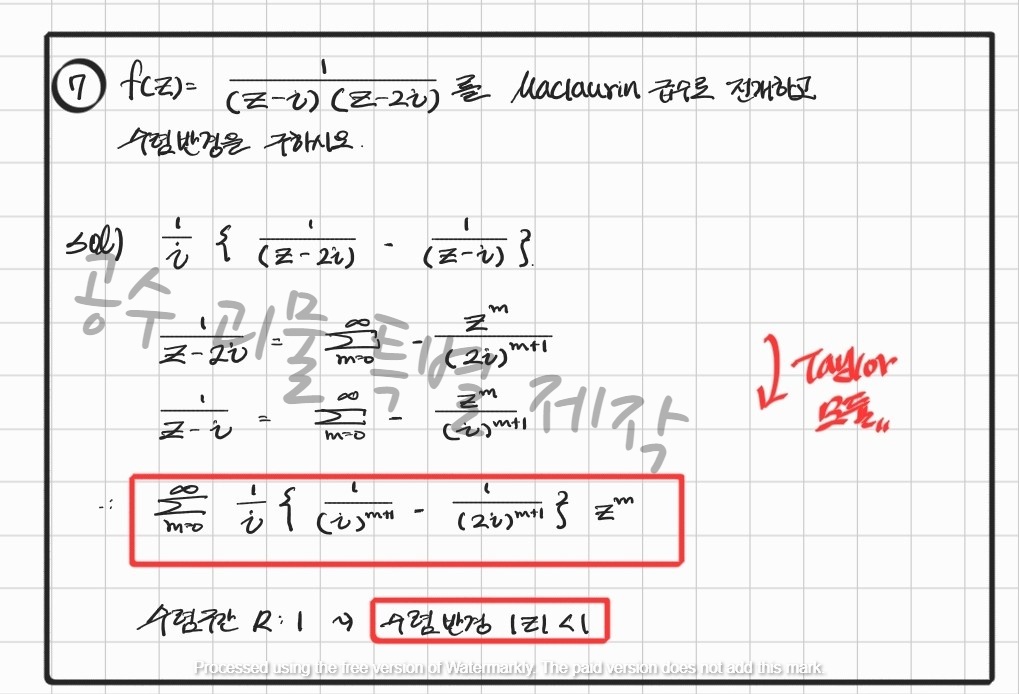 ⑦ f(z)= 1/((z-i)(z-2i)) 를 Maclaurin 급수로 전개하고
수렴반경을 구하시오.
sol) 1/i { 1/(z-2i) - 1/(z-i) }.
공수 괴물 특별 제작
1/(z-2i) = ∞Σm=0 - z^m/(2i)^(m+1)
Taylor
모듈..
1/(z-i) = ∞Σm=0 - z^m/(i)^(m+1)
∴ ∞Σm=0 1/i { 1/(i)^(m+1) - 1/(2i)^(m+1) } z^m
수렴구간 R: 1 → 수렴반경 |z| <1
Processed using the free version of Watermarkly. The paid version does not add this mark.